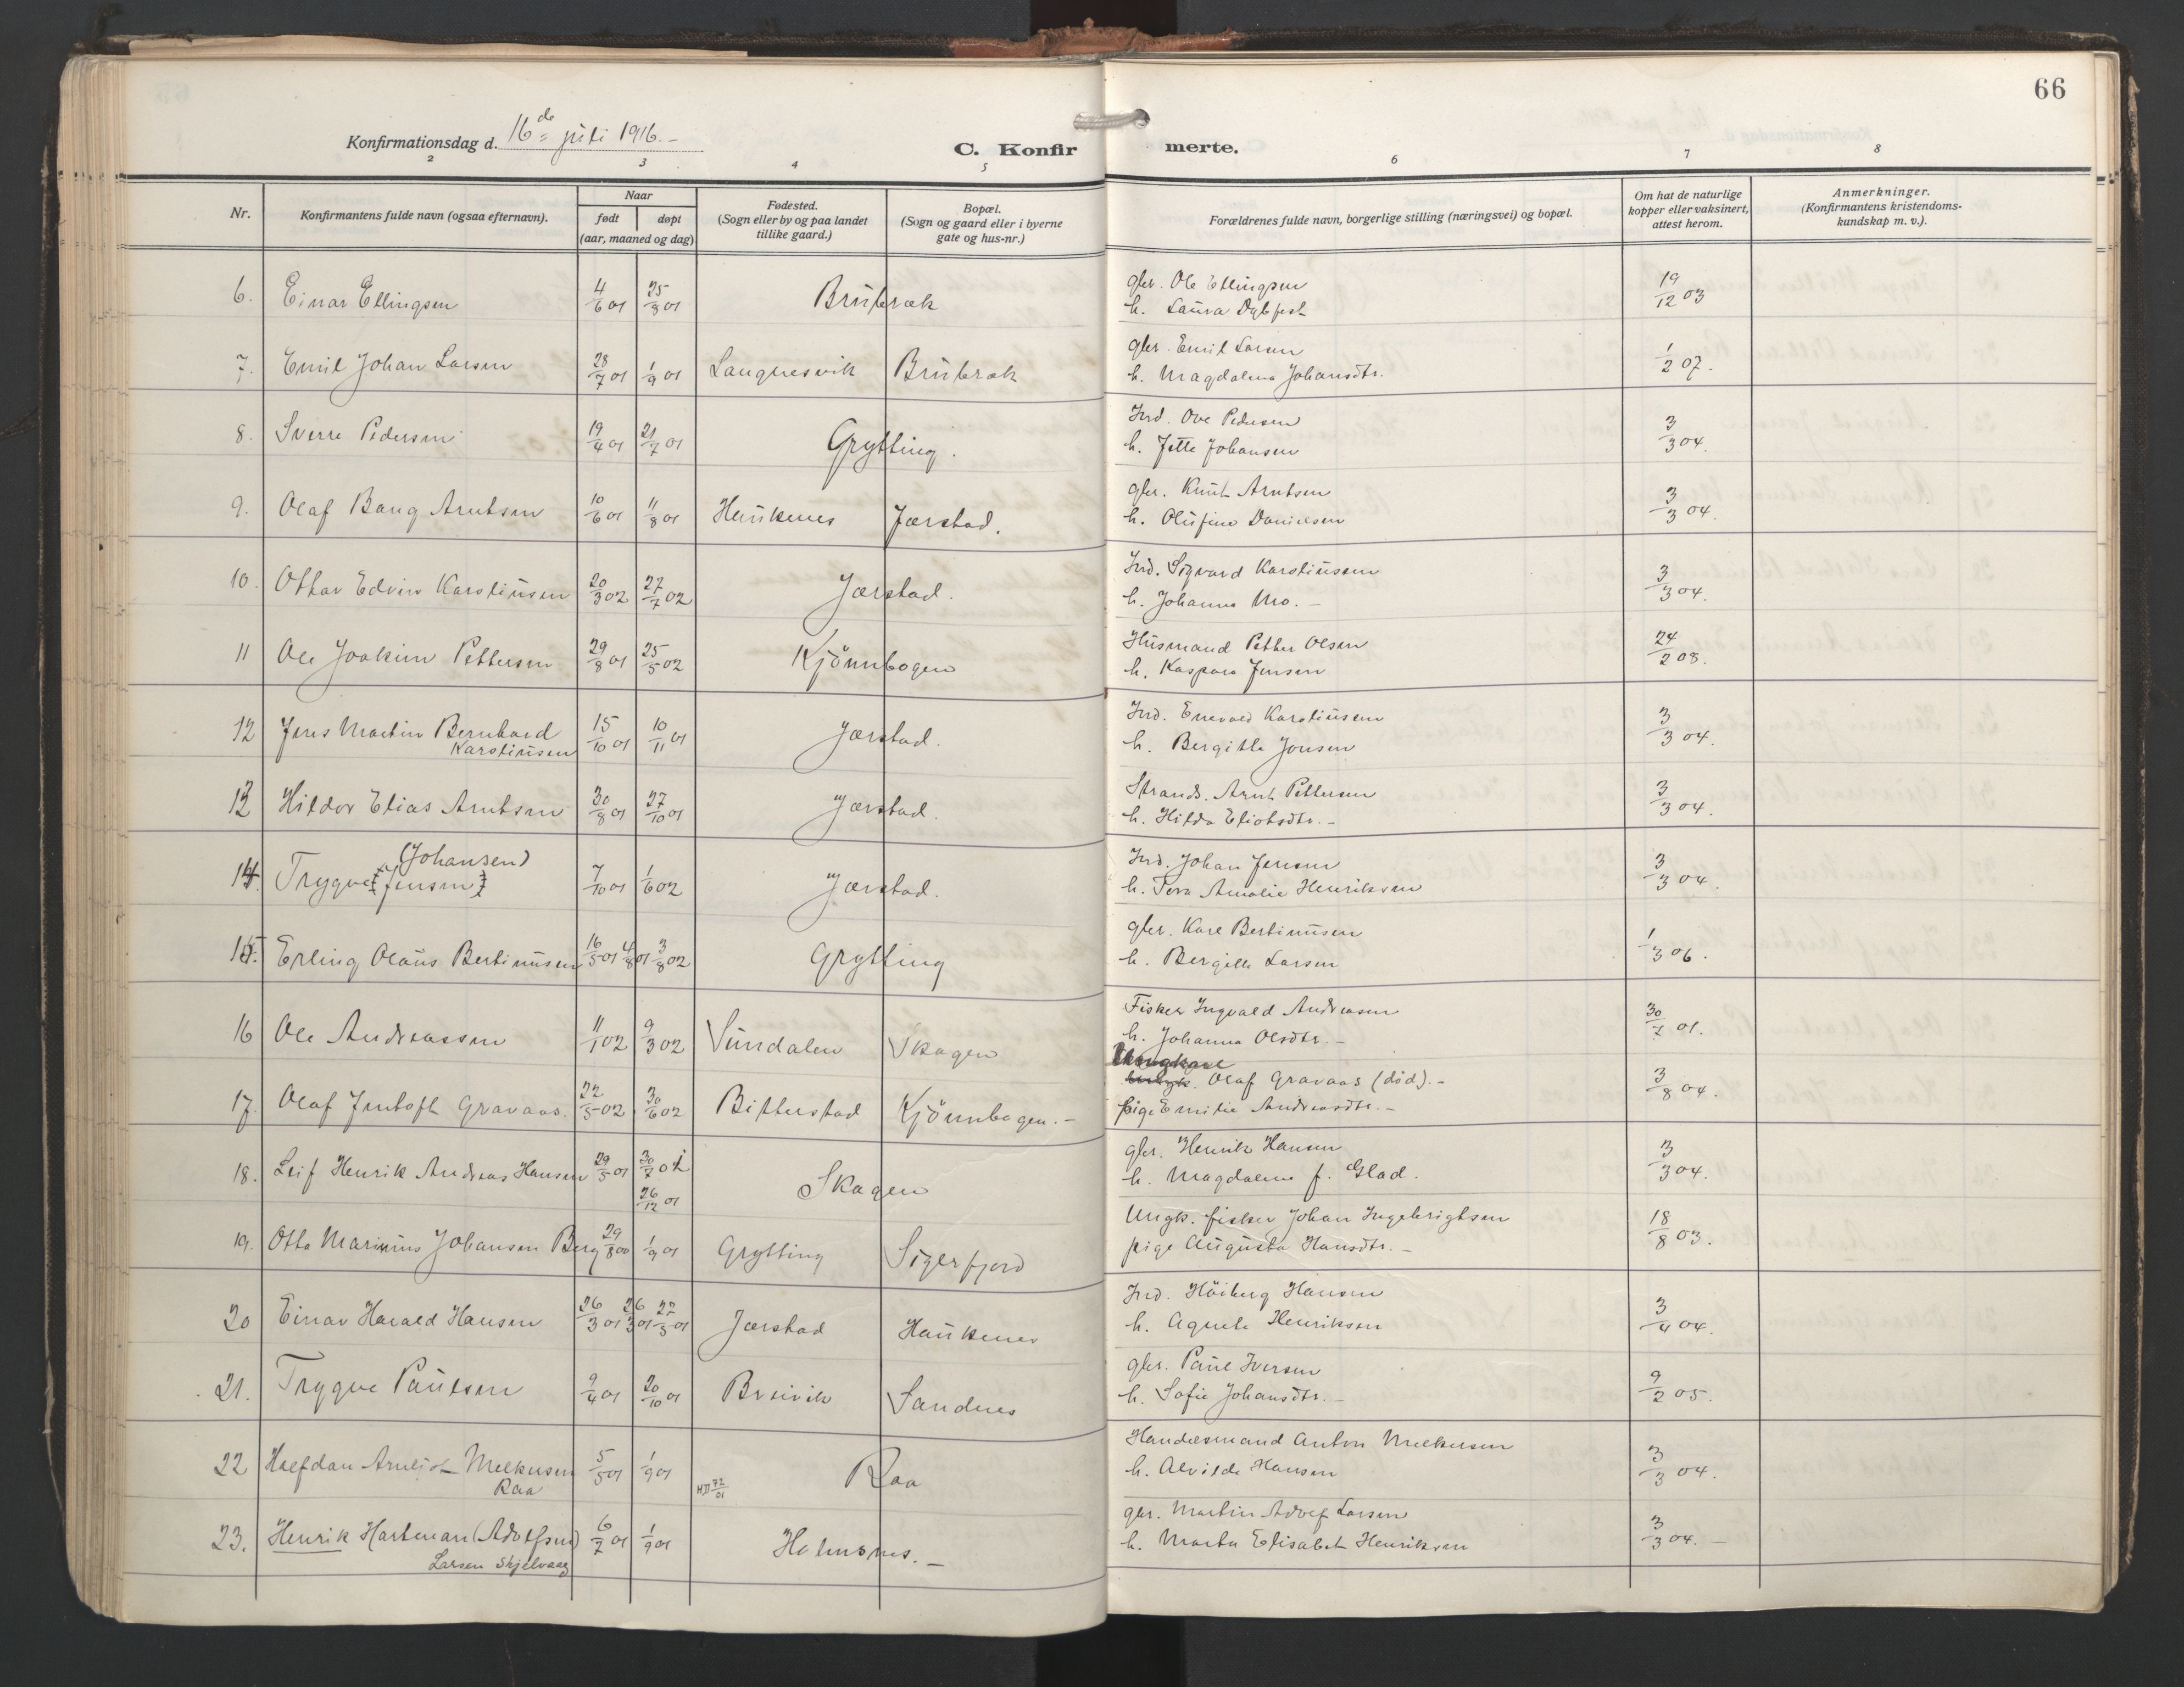 66
Konfirmationsdag d. 16de juli 1916.-
C. Konfirmerte.
2 3 4 5 6 7 8
Nr.
Konfirmantens fulde navn (ogsaa efternavn).
Naar
født døpt
(aar, maaned og dag)
Fødested.
(Sogn eller by og paa landet
tillike gaard.)
Bopæl.
(Sogn og gaard eller i byerne
gate og hus-nr.)
Forældrenes fulde navn, borgerlige stilling (næringsvei) og bopæl.
Om hat de naturlige
kopper eller vaksinert,
attest herom.
Anmerkninger.
(Konfirmantens kristendoms-
kundskap m. v.).
6. Einar Ellingsen 4/6 01 25/8 01 Brubræk gbr. Ole Ellingsen 19/12 03
h. Laura Dybfest
7. Emil Johan Larsen 28/7 01 1/9 01 Langnesvik Brubræk gbr. Emil Larsen 1/2 07.
h. Magdalena Johansdtr.
8. Sverre Pedersen 19/4 01 21/7 01 Grytting. Ind. Ove Pedersen 3/3 04.
h. Jette Johansen
9. Olaf Bang Arntsen 10/6 01 11/8 01 Haukenes Jærstad. gbr. Knut Arntsen 3/3 04.
h. Olufine Danielsen
10. Ottar Edvin Karstinsen 20/3 02 27/7 02 Jærstad. Ind. Sigvard Karstinsen 3/3 04.
h. Johanna Mo. -
11 Ole Joakim Pettersen 29/8 01 25/5 02 Kjönnbogen Husmand Petter Olsen 24/2 08.
h. Kaspara Jensen
12 Jens Martin Bernhard 15/10 01 10/11 01 Jærstad. Ind. Enevold Karstinsen 3/3 04.
Karstinsen h. Bergitte Jonsen
13 Hildor Elias Arntsen 30/8 01 27/10 01 Jærstad. Strands. Arnt Pettersen 3/3 04.
h. Hilda Eliotsdtr. -
(Johansen)
14. Trygve Jensen 7/10 01 1/6 02 Jærstad. Ind. Johan Jensen 3/3 04.
h. Tora Amalie Henriksen
15. Erling Olaus Bertinusen 16/5 01 4/8 01 3/8 02 Grytting gbr. Karl Bertinusen 1/3 06.
h. Bergitte Larsen
16 Ole Andreassen 11/1 02 9/3 02 Sundalen Skagen Fisker Ingvald Andreasen 30/7 01.
h. Johanna Olsdtr. -
Ungkarl
17. Olaf Jentoft Gravaas. 22/5 02 30/6 02 Bitterstad Kjönnbogen.- Olaf Gravaas (död).- 3/8 04.
pige Emilie Andreasdtr. -
18. Leif Henrik Andreas Hansen 29/5 01 30/7 01 Skagen gbr. Henrik Hansen 3/3 04.
26/12 01 h. Magdalena f. Glad.
19. Otto Marinius Johansen Berg 29/8 00 1/9 01 Grytting Sigerfjord Ungk. fisker Johan Ingebrigtsen 18/8 03.
pige Augusta Hansdtr. -
20 Einar Harald Hansen 26/3 01 26/3 01 27/5 01 Jærstad Haukenes Ind. Höiberg Hansen 3/4 04.
h. Agnete Henriksen
21. Trygve Paulsen 9/4 01 20/10 01 Breivik Sandnes gbr. Paul Iversen 9/2 05.
h. Sofie Johansdtr. -
22 Halfdan Arnljot Melkersen 5/5 01 1/9 01 Raa Handelsmand Anton Melkersen 3/3 04.
Raa H.D 72/01 h. Alvilde Hansen
23. Henrik Hartman (Adolfsen) 6/7 01 1/9 01 Holmsnes. - gbr. Martin Adolf Larsen 3/3 04. -
Larsen Skjelvaag h. Marta Elisabet Henriksen